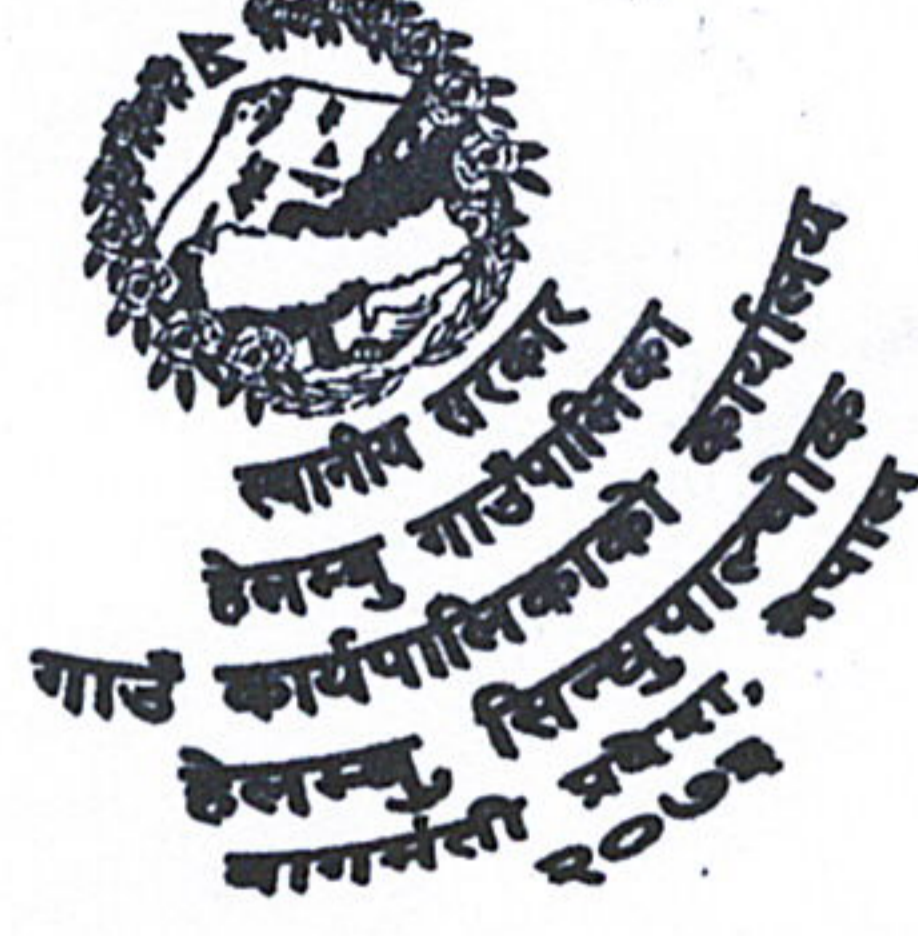 स्थानीय सरकार
हेलम्बु गाउँपालिका
गाउँ कार्यपालिकाको कार्यालय
हेलम्बु, सिन्धुपाल्चोक
बागमती प्रदेश, नेपाल